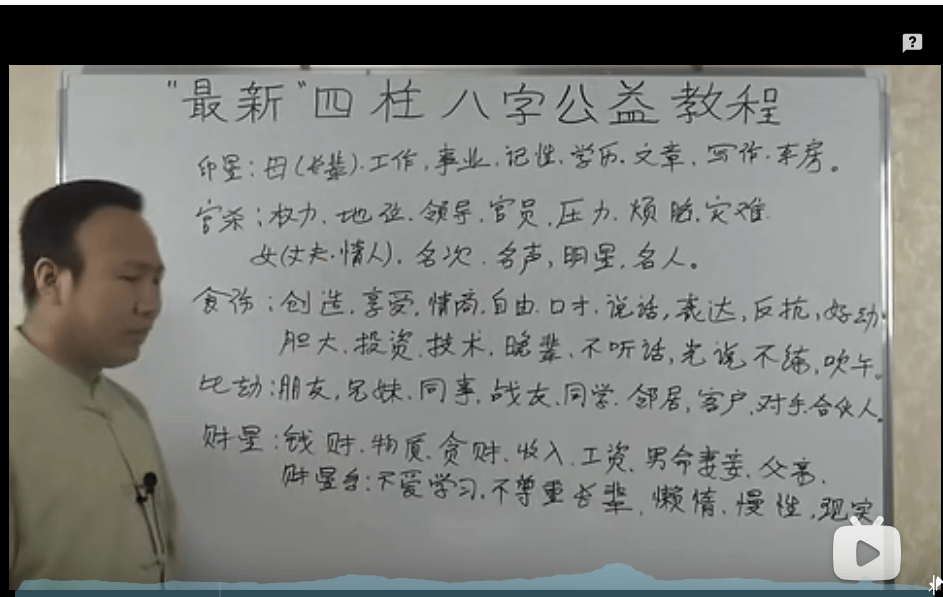 "最新"四柱八字公益教程
印星:母(长辈).工作.事业.记性.学历.文章.写作.车房。
官杀:权力.地位.领导.官员.压力.烦恼.灾难.
女(丈夫.情人).名次.名声,明星.名人。
食伤:创造.享受.情商.自由.口才.说话,表达,反抗,好动.
胆大.投资.技术.晚辈.不听话,光说不练,吹牛。
比劫:朋友,兄妹.同事.战友.同学.邻居,客户,对手合伙人.
财星:钱财.物质.贪财.收入.工资.男命妻妾.父亲.
财星多:不爱学习.不尊重长辈.懒惰.慢性,现实